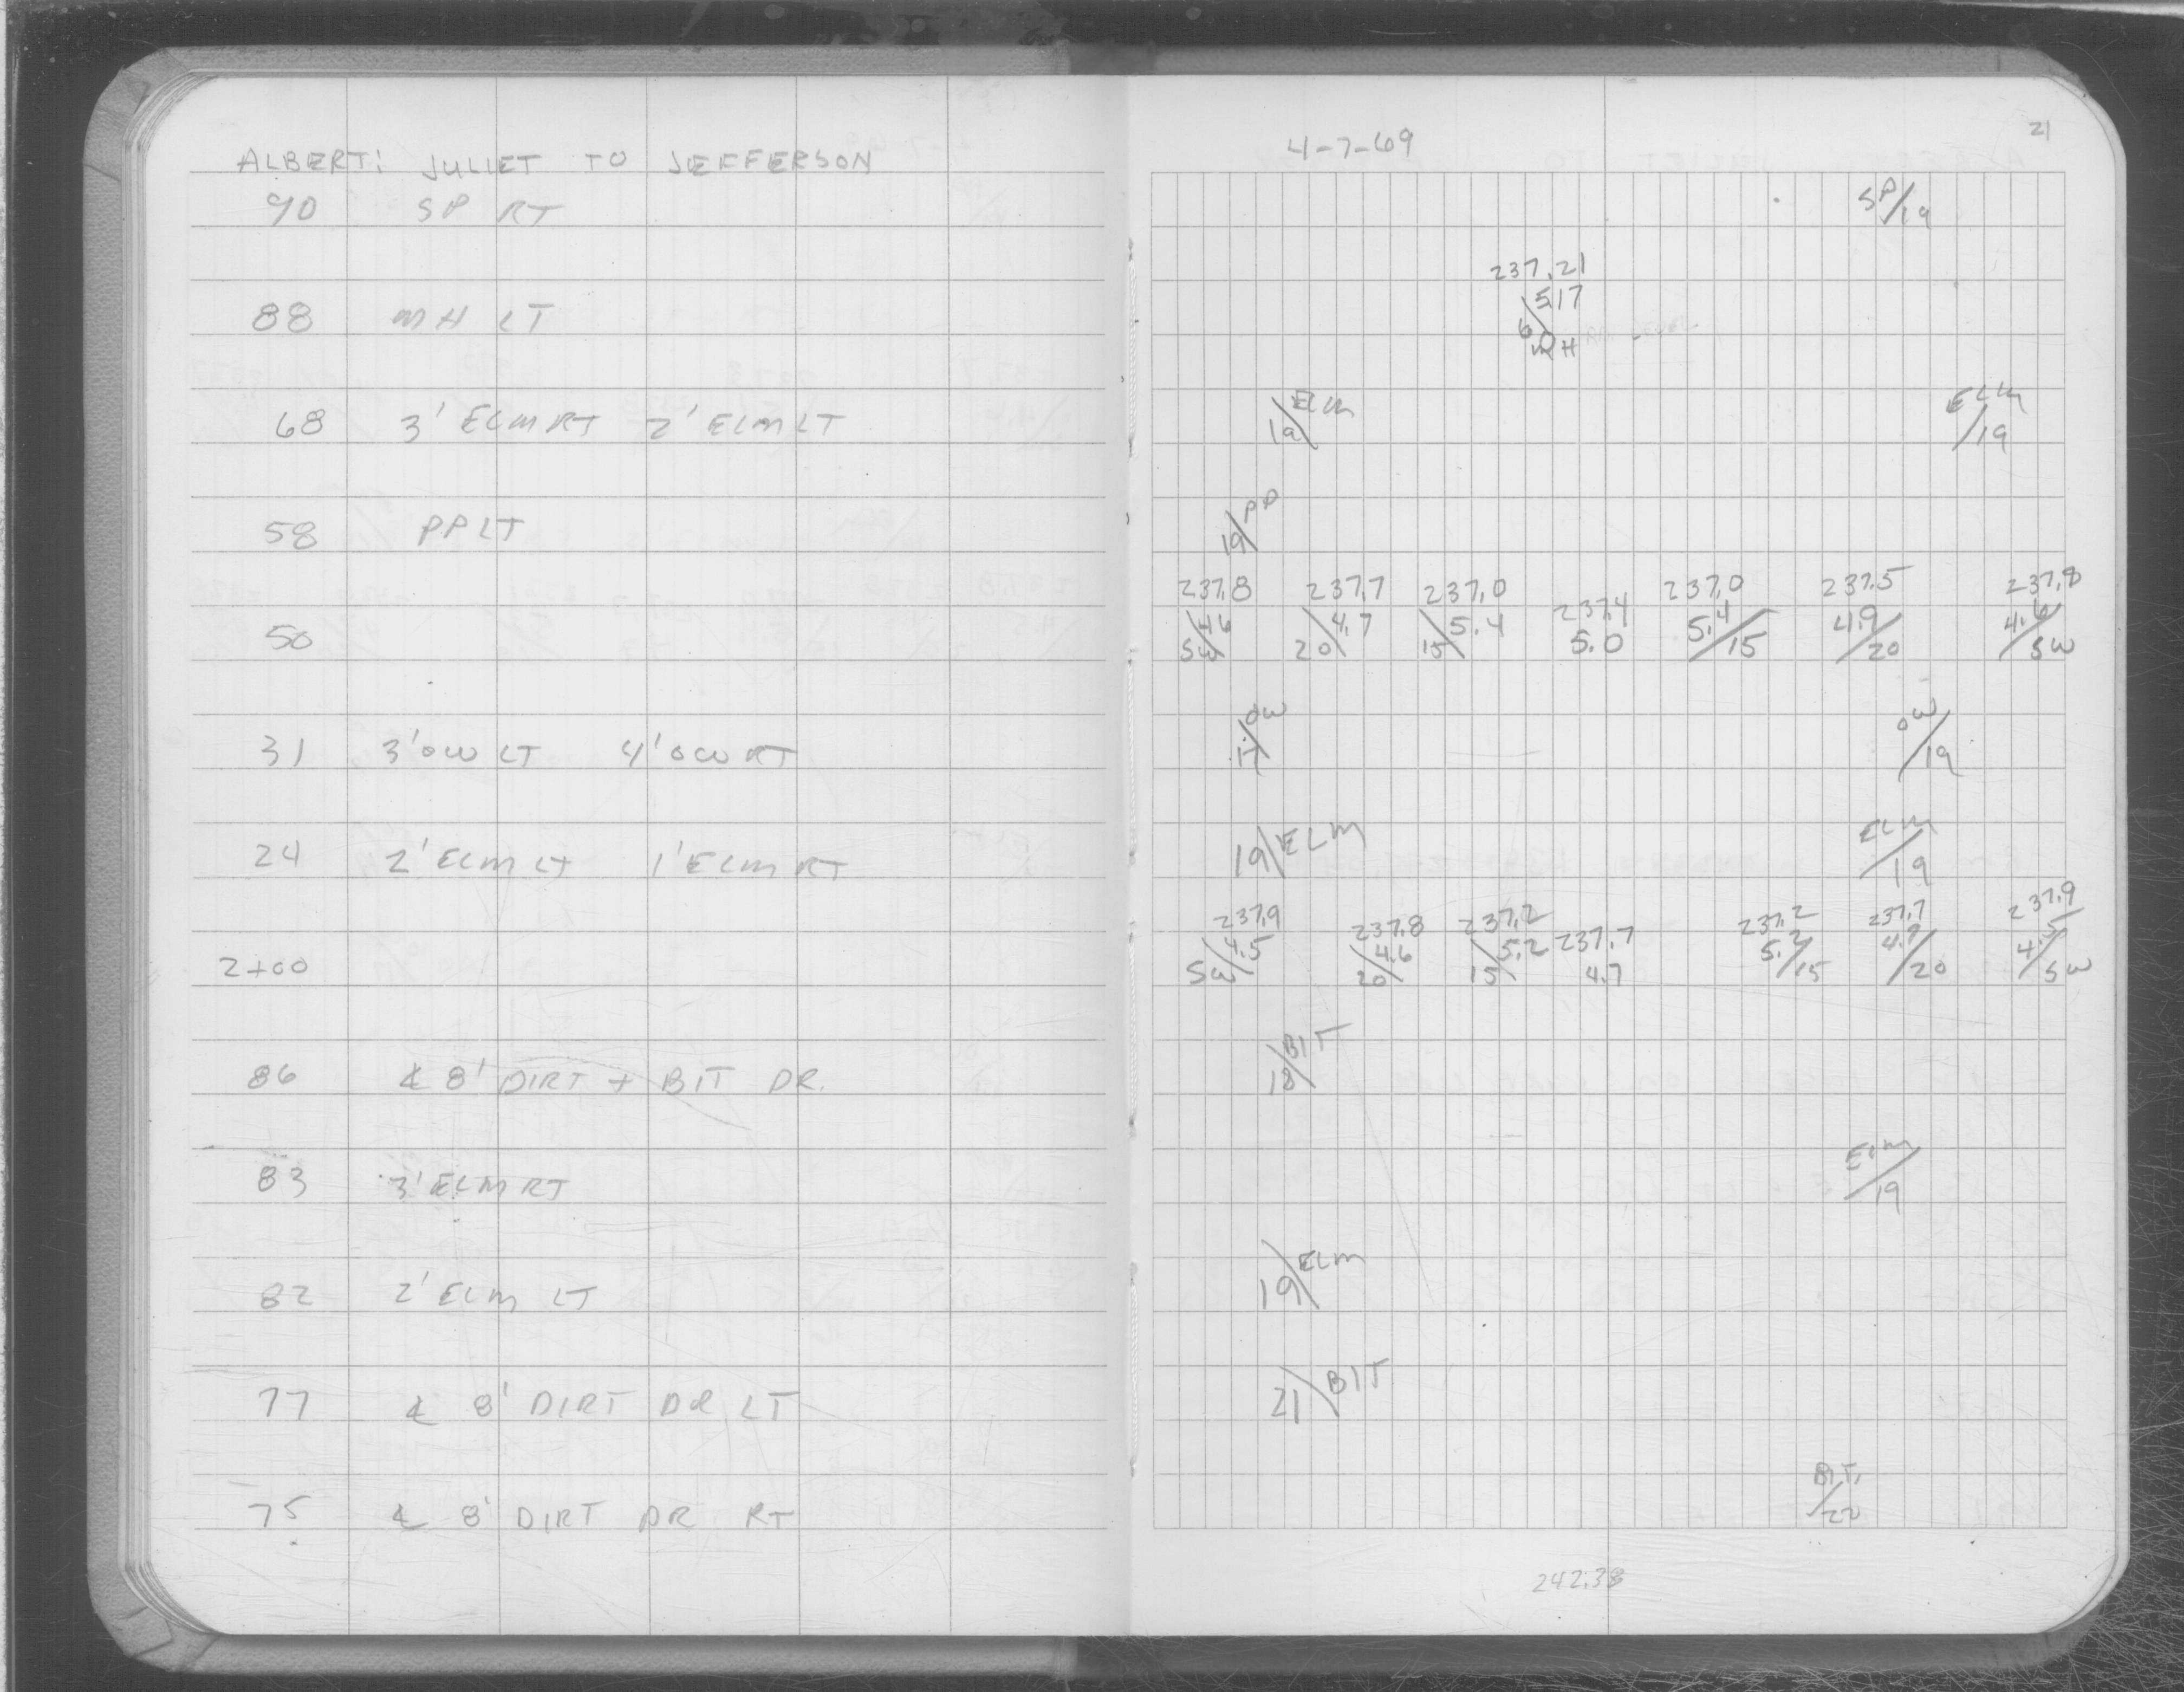 ALBERT: JULIET TO JEFFERSON
90 SP RT
88 MH LT
68 3' ELM RT 2' ELM LT
58 PP LT
50
31 3' OW LT 4' OW RT
24 2' ELM LT 1' ELM RT
2+00
86 ℄ 8' DIRT + BIT DR.
83 3' ELM RT
82 2' ELM LT
77 ℄ 8' DIRT DR LT
75 ℄ 8' DIRT DR RT
21
4-7-69
SP/19
237.21
5.17
6.0
MH
19\ELM ELM/19
19\PP
237.8 237.7 237.0 237.4 237.0 237.5 237.8
4.6 4.7 5.4 5.0 5.4 4.9 4.6
SW 20 15 15 20 SW
OW OW/19
19\ELM ELM/19
237.9 237.8 237.2 237.7 237.2 237.7 237.9
4.5 4.6 5.2 4.7 5.2 4.7 4.5
SW 20 15 15 20 SW
18\BIT
ELM/19
19\ELM
21\BIT
BIT./22
242.38